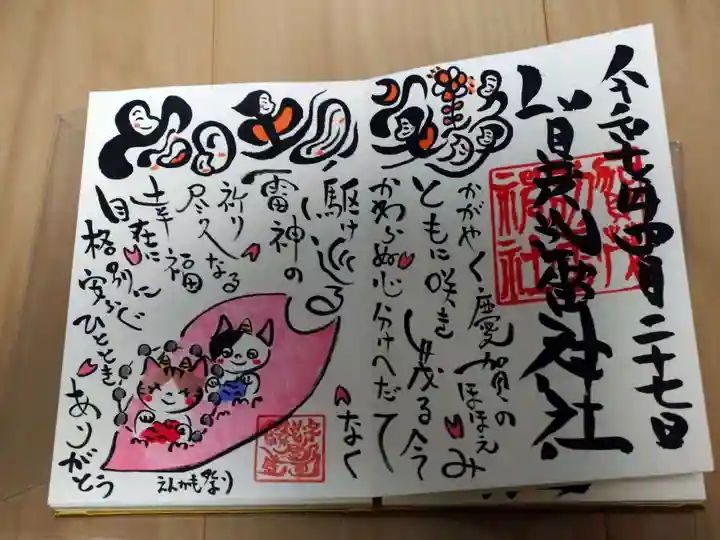 令和七年四月二十七日
賀茂別雷神社
かがやく慶賀のほほえみ
ともに咲き茂る今
かわらぬ心分けへだて
なく
駆け巡る
雷神の
祈り
尽久なる
幸福
自在に
格別に
安らぐひととき
ありがとう
えんかも祭り